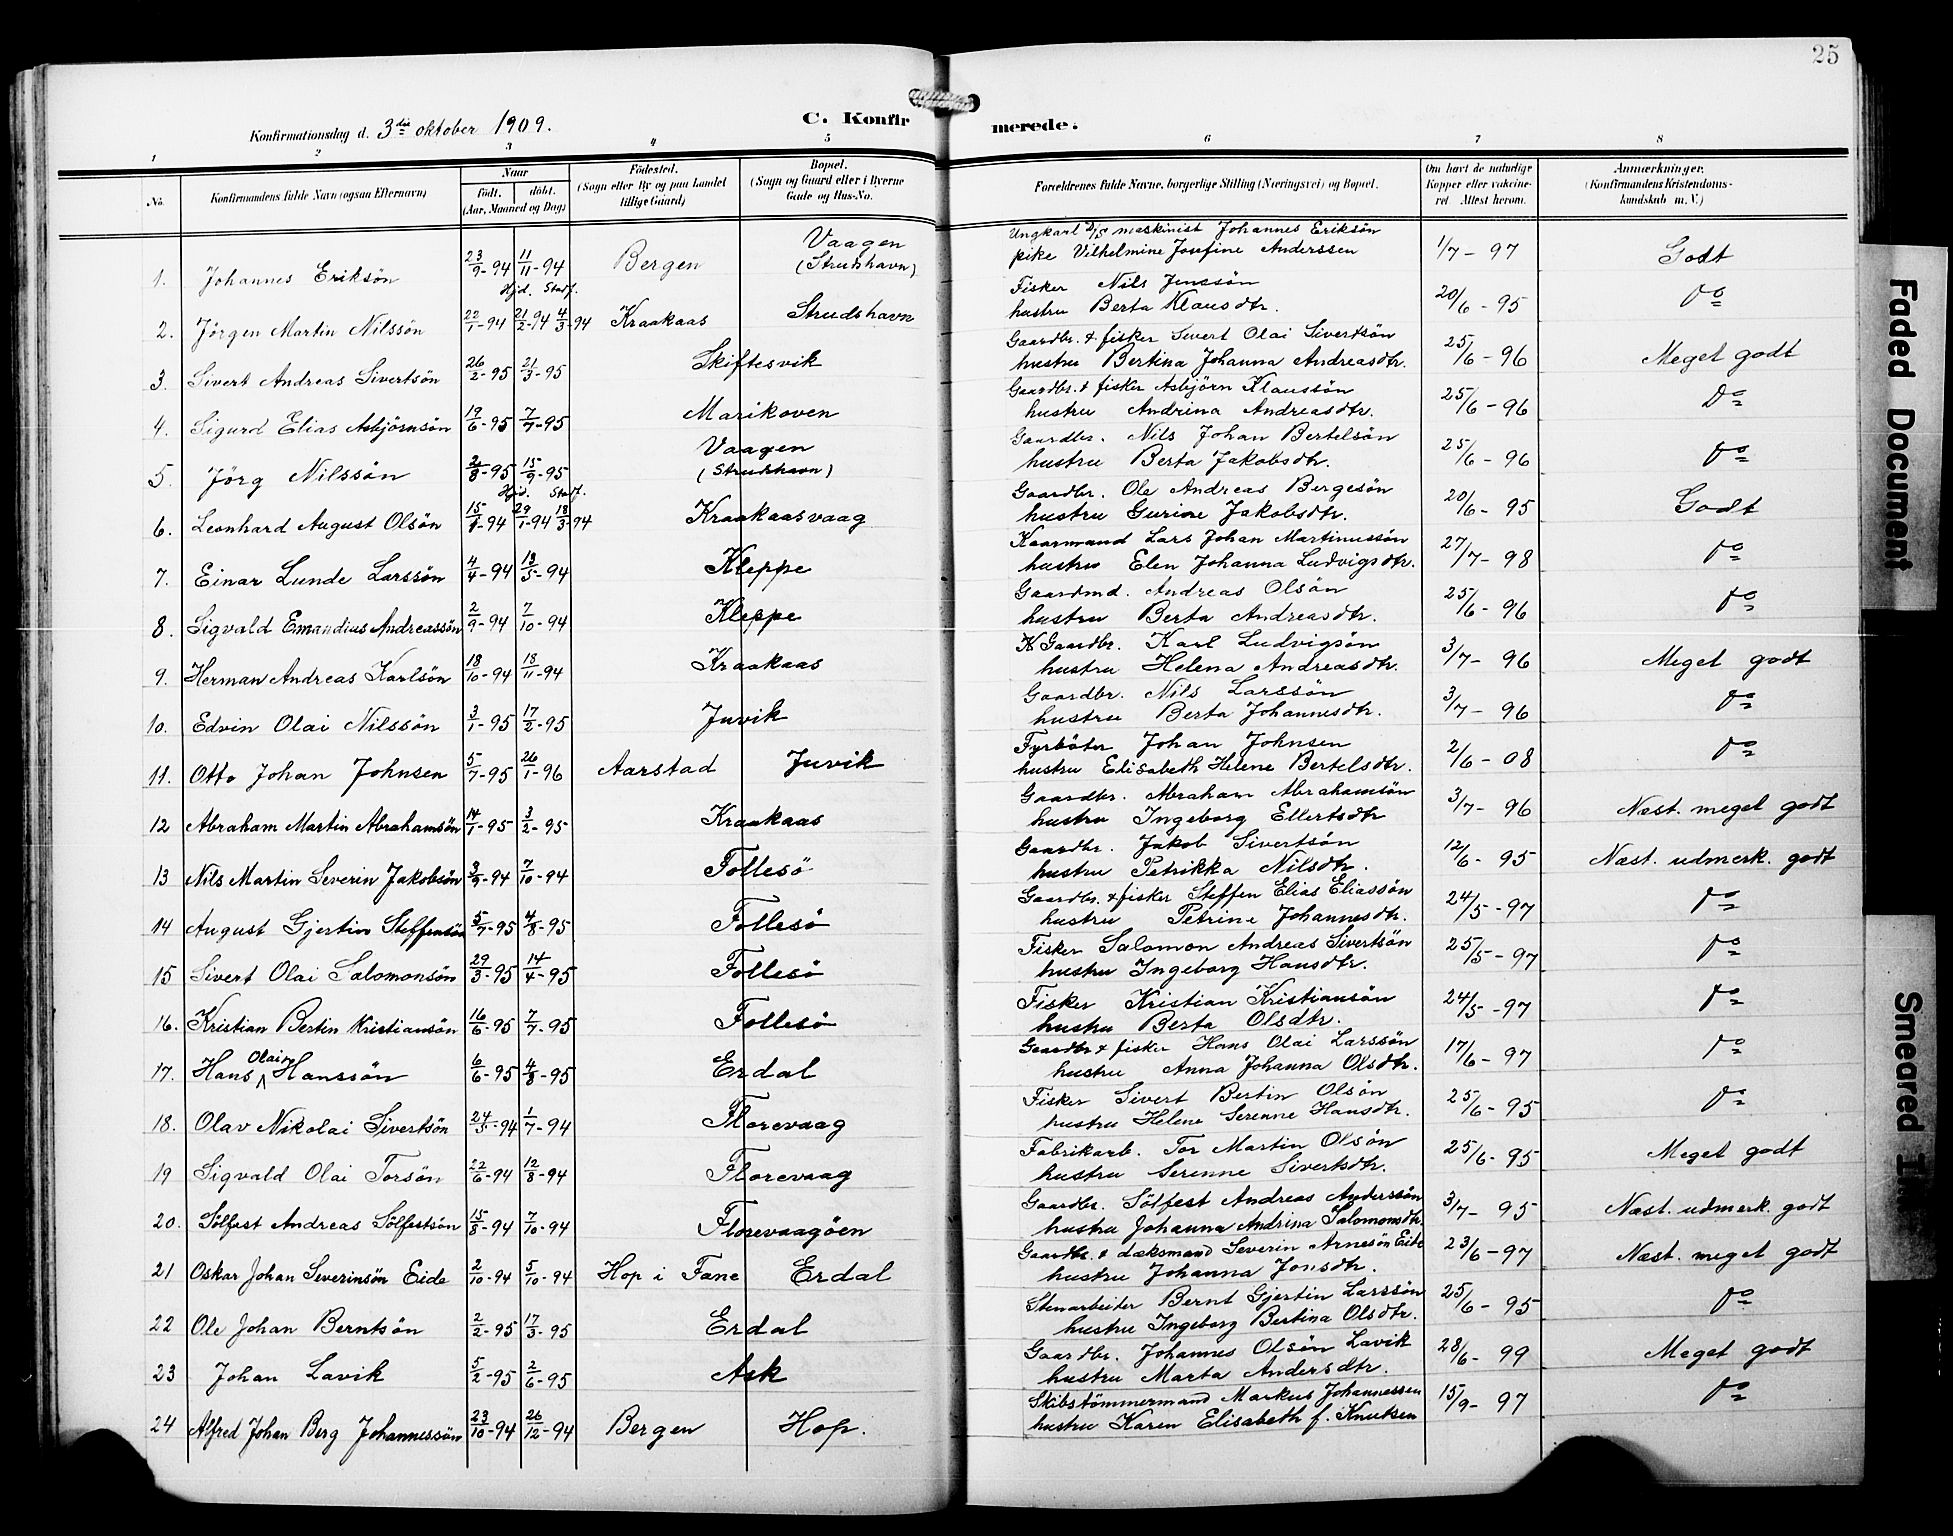 25
Konfirmationsdag d. 3die oktober 1909.
C. Konfirmerede.
1 2 3 4 5 6 7 8
No. Konfirmandens fulde Navn (ogsaa Efternavn) Naar født. døbt. (Aar, Maaned og Dag) Fødested. (Sogn eller By og paa Landet tillige Gaard) Bopæl. (Sogn og Gaard eller i Byerne Gade og Hus-No. Forældrenes fulde Navne, borgerlige Stilling (Næringsvei) og Bopæl. Om havt de naturlige Kopper eller vakcineret. Attest herom. Anmerkninger. (Konfirmandens Kristendomskundskab m. V.)
1. Johannes Eriksön 23/9-94 11/11-94 Bergen Vaagen (Strudshavn) Ungkarl D/S maskinist Johannes Eriksön pike Vilhelmine Josefine Anderssen 1/7-97 Godt
2. Jörgen Martin Nilssön 22/1-94 Hjd. 21/2-94 Stadf. 4/3-94 Kraakaas Strudshavn Fisker Nils Jenssön hustru Berta Klausdtr. 20/6-95 do
3. Sivert Andreas Sivertsön 26/2-95 21/3-95 Skiftesvik Gaardbr. & fisker Sivert Olai Sivertsön hustru Bertina Johanna Andreasdtr. 25/6-96 Meget godt
4. Sigurd Elias Asbjörnsön 19/6-95 7/7-95 Marikoven Gaardbr. & fisker Asbjörn Klaussön hustru Andrina Andreasdtr. 25/6-96 Do
5. Jörg Nilssön 2/8-95 15/9-95 Vaagen (Strudshavn) Gaardbr. Nils Johan Bertelsön hustru Berta Jakobsdtr. 25/6-96 do
6. Leonhard August Olsön 15/1-94 Hjd. 29/1-94 Stadf. 18/3-94 Kraakaasvaag Gaardbr. Ole Andreas Bergesön hustru Gurine Jakobsdtr. 20/6-95 Godt
7. Einar Lunde Larssön 4/4-94 13/5-94 Kleppe Kaarmand Lars Johan Martinussön hustru Elen Johanna Ludvigsdtr. 27/7-98 do
8. Sigvald Emandius Andreassön 2/9-94 7/10-94 Kleppe Gaardmd. Andreas Olsön hustru Berta Andreasdtr. 25/6-96 do
9. Herman Andreas Karlsön 18/10-94 18/11-94 Kraakaas K Gaardbr. Karl Ludvigsön hustru Helena Andreasdtr. 3/7-96 Meget godt
10. Edvin Olai Nilssön 3/1-95 17/2-95 Juvik Gaardbr. Nils Larssön hustru Berta Johannesdtr. 3/7-96 do
11. Otto Johan Johnsen 5/7-95 26/1-96 Aarstad Juvik Fyrböter Johan Johnsen hustru Elisabeth Helene Bertelsdtr. 2/6-08 do
12 Abraham Martin Abrahamsön 14/1-95 3/2-95 Kraakaas Gaardbr. Abraham Abrahamsön hustru Ingeborg Ellertsdtr 3/7-96 Næst. meget godt
13 Nils Martin Severin Jakobsön 3/9-94 7/10-94 Follesö Gaardbr. Jakob Sivertsön hustru Petrikka Nilsdtr. 12/6-95 Næst. udmerk. godt
14 August Gjertin Steffensön 5/7-95 4/8-95 Follesö Gaardbr. & fisker Steffen Elias Eliassön hustru Petrine Johannesdtr. 24/5-97 do
15 Sivert Olai Salomonsön 29/3-95 14/4-95 Follesö Fisker Salomon Andreas Sivertsön hustru Ingeborg Hansdtr. 25/5-97 do
16. Kristian Bertin Kristiansön 16/6-95 7/7-95 Follesö Fisker Kristian Kristiansön hustru Berta Olsdtr. 24/5-97 do
17. Hans Olai Hanssön 6/6-95 4/8-95 Erdal Gaardbr & fisker Hans Olai Larssön hustru Anna Johanna Olsdtr. 17/6-97 do
18. Olav Nikolai Sivertsön 24/5-94 1/7-94 Florevaag Fisker Sivert Bertin Olsön hustru Helene Serenne Hansdtr. 25/6-95 do
19 Sigvald Olai Torsön 22/6-94 12/8-94 Florevaag Fabrikarb. Tor Martin Olsön hustru Serenne Sivertsdtr. 25/6-95 Meget godt
20. Sölfest Andreas Sölfestsön 15/8-94 7/10-94 Florevaagöen Gaardbr. Sölfest Andreas Anderssön hustru Johanna Andrina Salomonsdtr 3/7-95 Næst. udmerk. godt
21 Oskar Johan Severinsön Eide 2/10-94 5/10-94 Hop i Fane Erdal Gaardbr. & dæksmand Severin Arnesön Eide hustru Johanna Jonsdtr. 23/6-97 Næst. meget godt
22 Ole Johan Berntsön 2/2-95 17/3-95 Erdal Stenarbeider Bernt Gjertin Larssön hustru Ingeborg Bertina Olsdtr. 25/6-95 do
23 Johan Lavik 5/2-95 2/6-95 Ask Gaardbr. Johannes Olsön Lavik hustru Marta Andersdtr. 28/6-99 Meget godt
24 Alfred Johan Berg Johannessön 23/10-94 26/12-94 Bergen Hop. Skibstömmermand Markus Johannessen hustru Karen Elisabeth f. Knutsen 15/9-97 do
Faded Document
Smeared